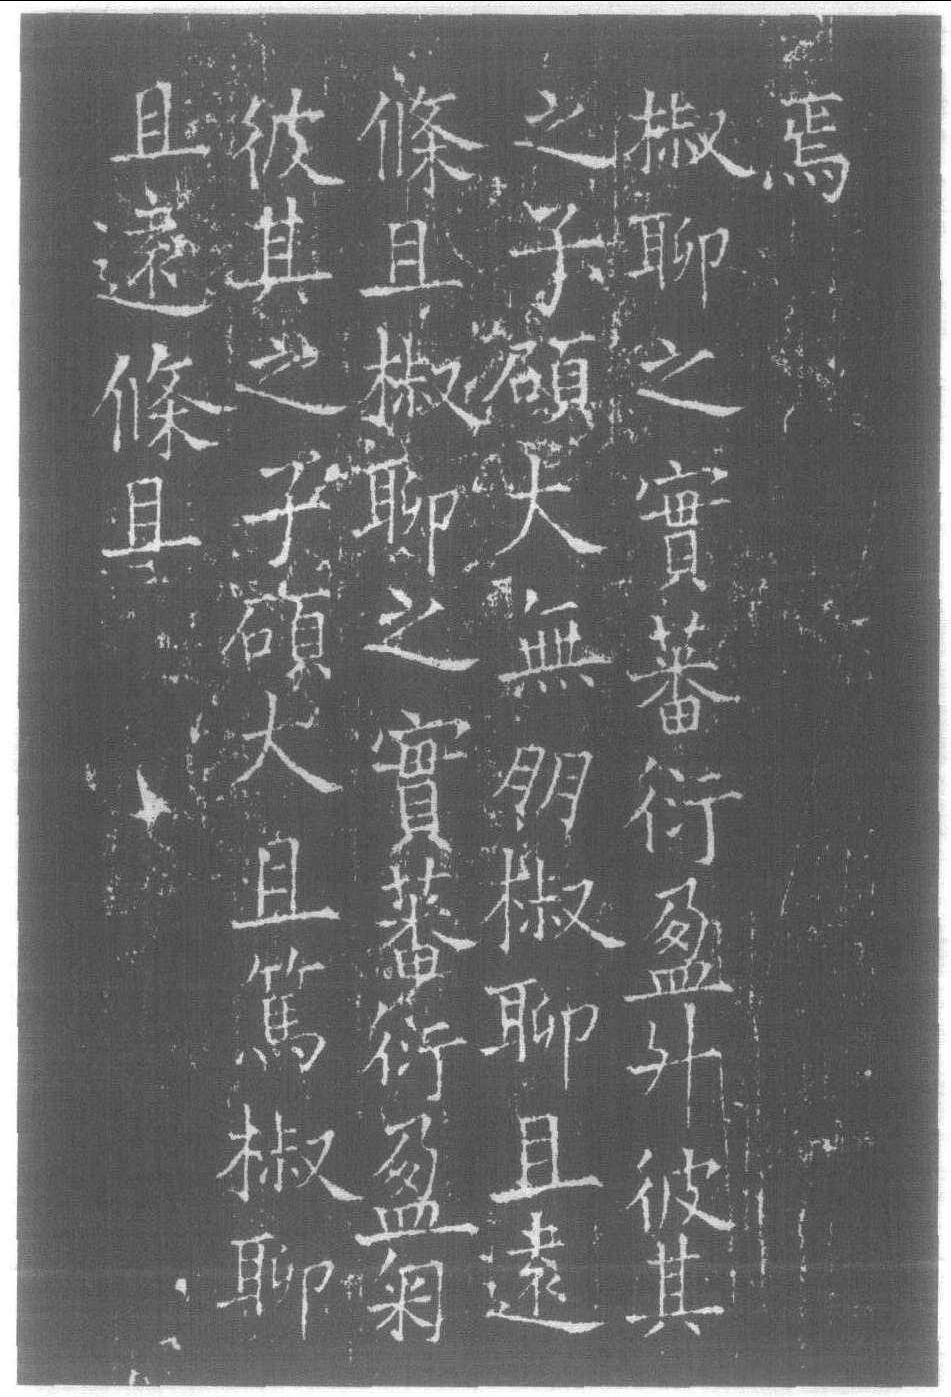 焉
椒聊之實蕃衍盈升彼其
之子碩大無朋椒聊且遠
條且椒聊之實蕃衍盈匊
彼其之子碩大且篤椒聊
且遠條且